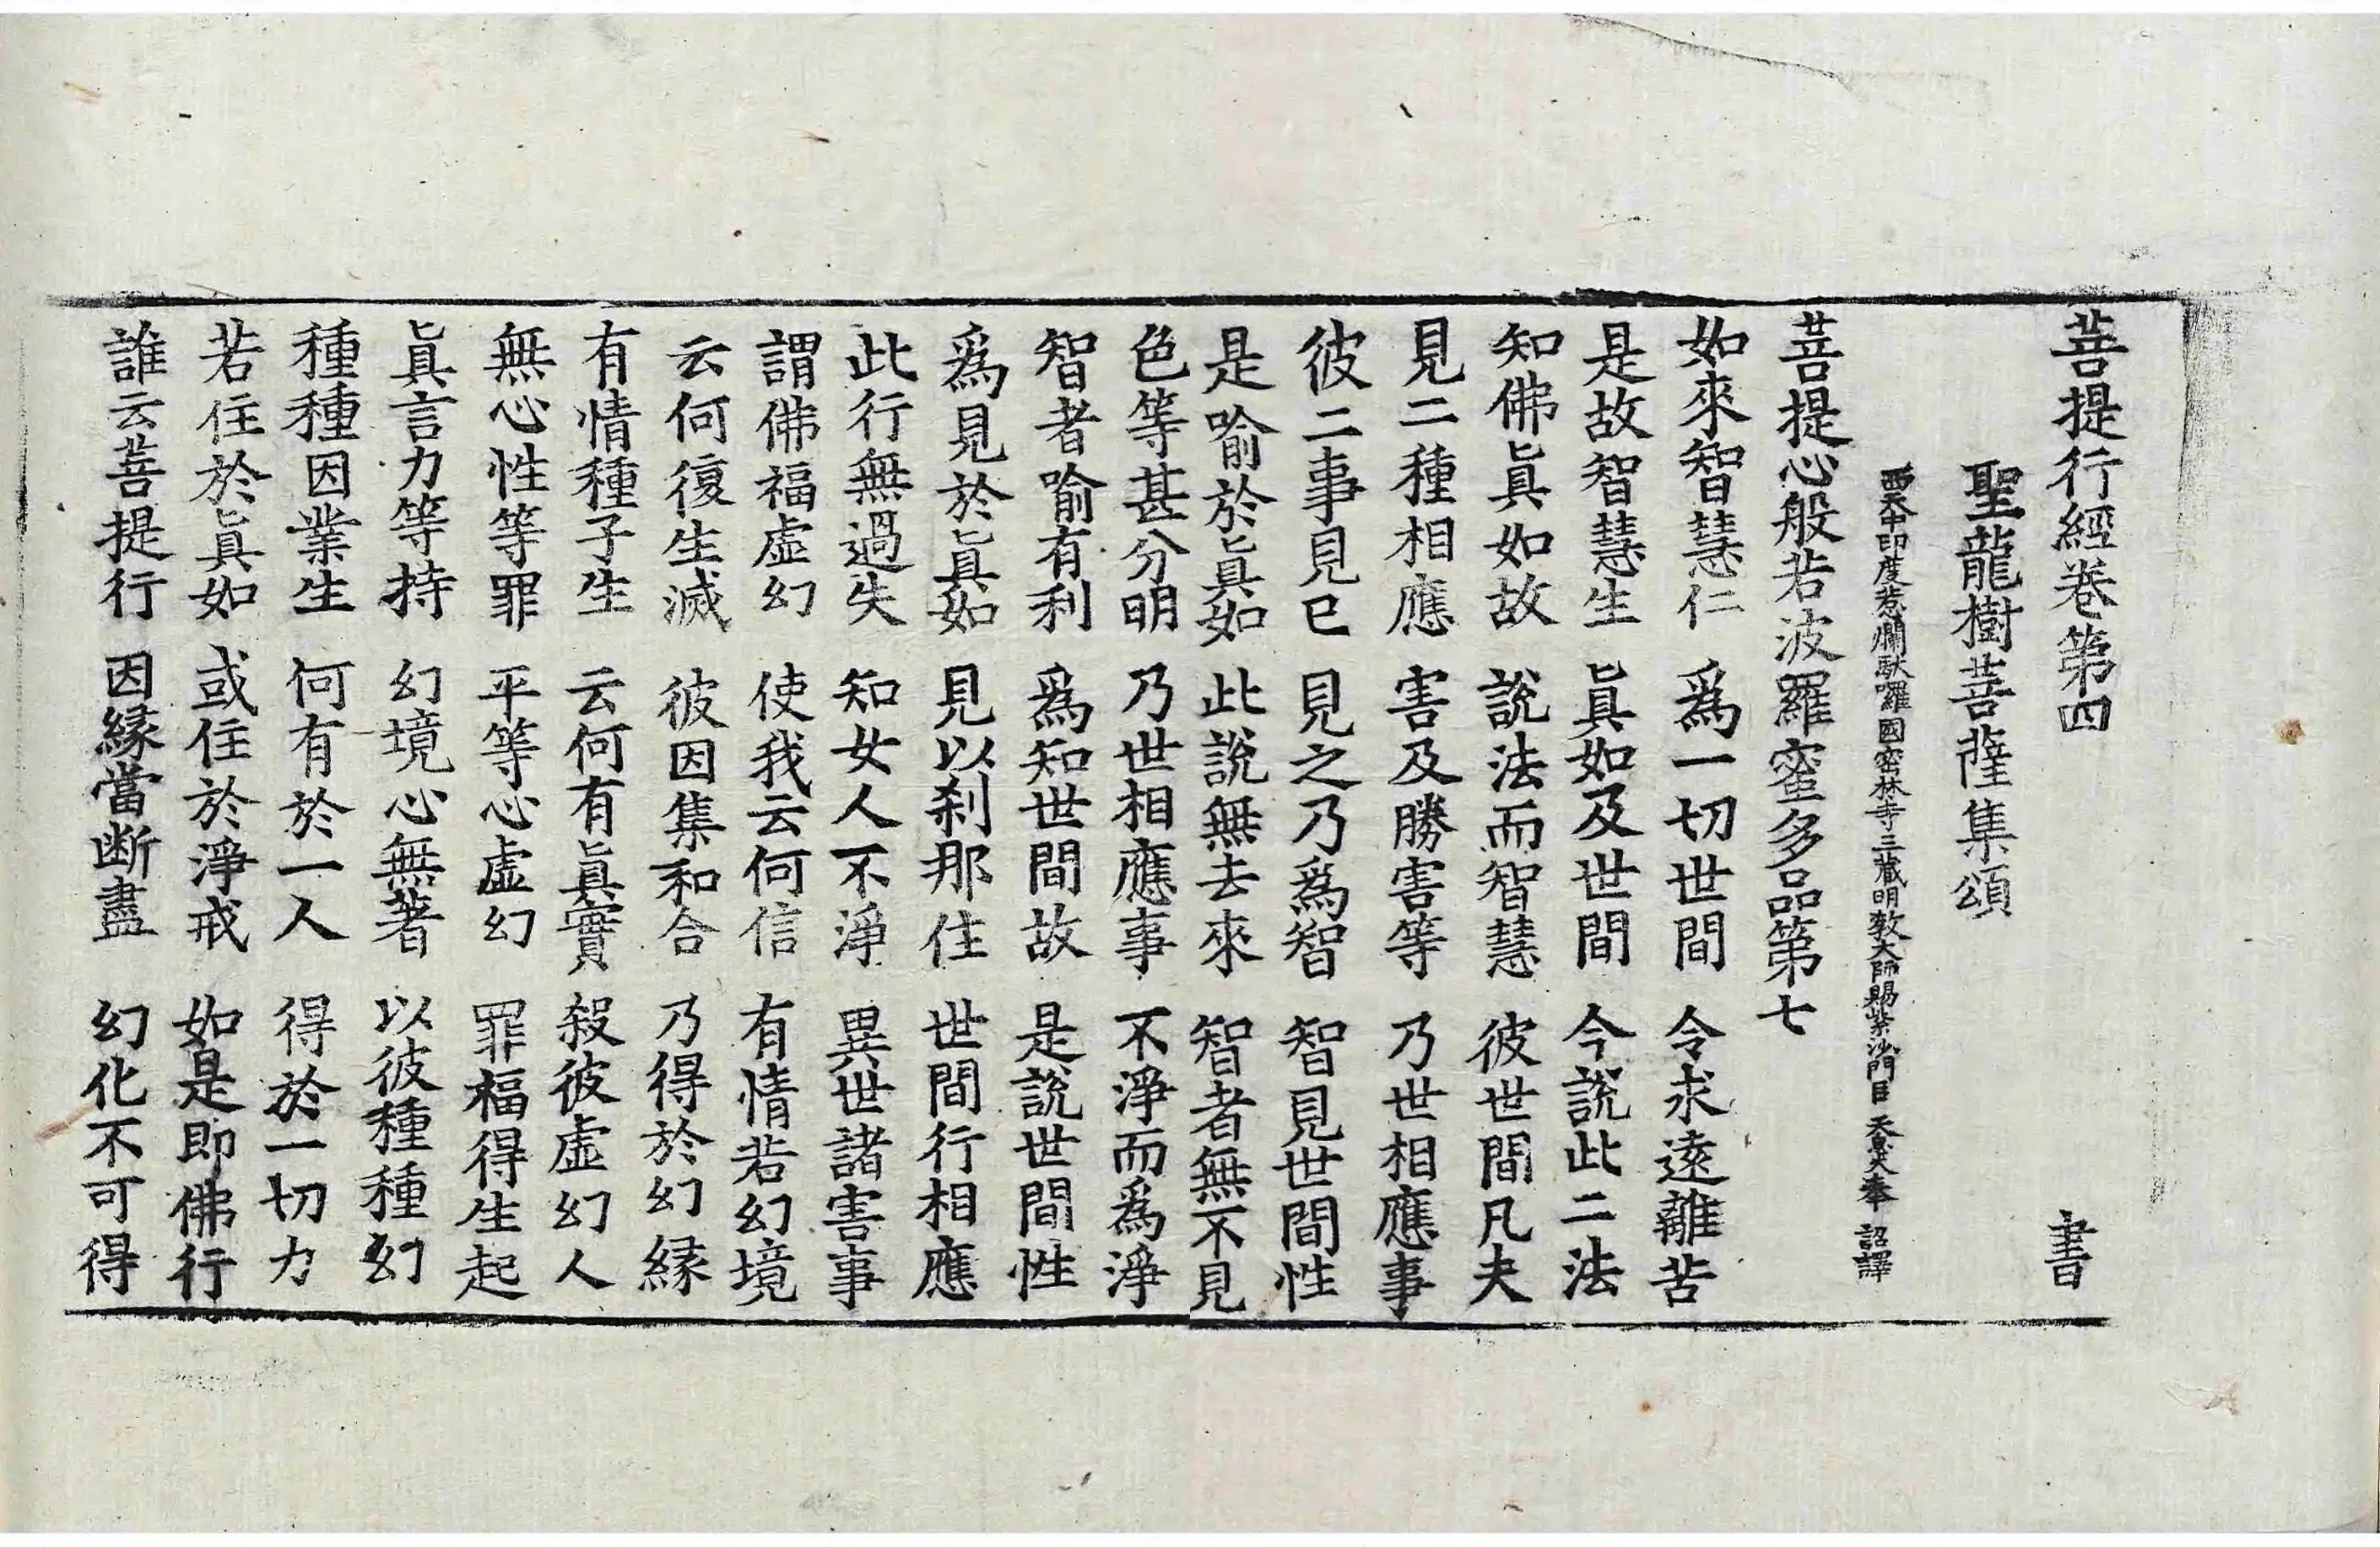 菩提行經卷第四　書
聖龍樹菩薩集頌
西天中印度惹爛駄囉國密林寺三藏明教大師賜紫沙門臣天息災奉　詔譯
菩提心般若波羅蜜多品第七
如來智慧仁　爲一切世間　令求遠離苦
是故智慧生　眞如及世間　今說此二法
知佛眞如故　說法而智慧　彼世間凡夫
見二種相應　害及勝害等　乃世相應事
彼二事見已　見之乃爲智　智見世間性
是喻於眞如　此說無去來　智者無不見
色等甚分明　乃世相應事　不淨而爲淨
智者喻有利　爲知世間故　是說世間性
爲見於眞如　見以刹那住　世間行相應
此行無過失　知女人不淨　異世諸害事
謂佛福虛幻　使我云何信　有情若幻境
云何復生滅　彼因集和合　乃得於幻緣
有情種子生　云何有眞實　殺彼虛幻人
無心性等罪　平等心虛幻　罪福得生起
眞言力等持　幻境心無著　以彼種種幻
種種因業生　何有於一人　得於一切力
若住於眞如　或住於淨戒　如是即佛行
誰云菩提行　因緣當断盡　幻化不可得